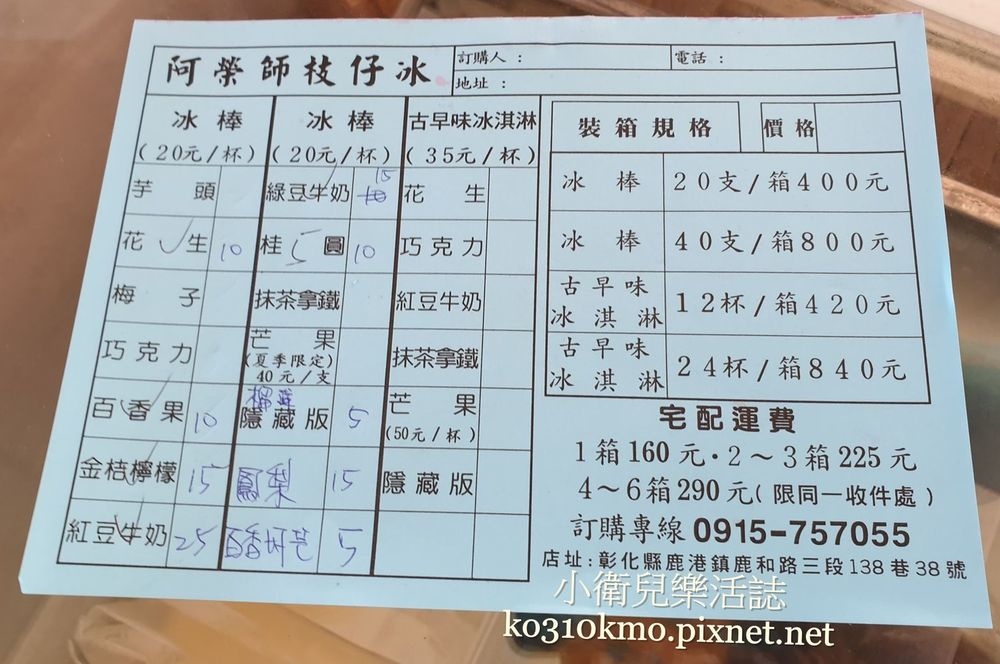 阿榮師枝仔冰
訂購人：
電話：
地址：
冰棒 冰棒 古早味冰淇淋
(20元/杯) (20元/杯) (35元/杯)
芋頭 綠豆牛奶 15 花生
花生 10 桂圓 5 10 巧克力
梅子 抹茶拿鐵 紅豆牛奶
巧克力 芒果 抹茶拿鐵
(夏季限定)
40元/支
百香果 10 隱藏版 5 芒果
(50元/杯)
金桔檸檬 15 鳳梨 15 隱藏版
紅豆牛奶 25 百香 5
裝箱規格 價格
冰棒 20支/箱400元
冰棒 40支/箱800元
古早味
冰淇淋 12杯/箱420元
古早味
冰淇淋 24杯/箱840元
宅配運費
1箱160元·2～3箱225元
4～6箱290元(限同一收件處)
訂購專線 0915-757055
店址:彰化縣鹿港鎮鹿和路三段138巷38號
小衛兒樂活誌
ko310kmo.pixnet.net